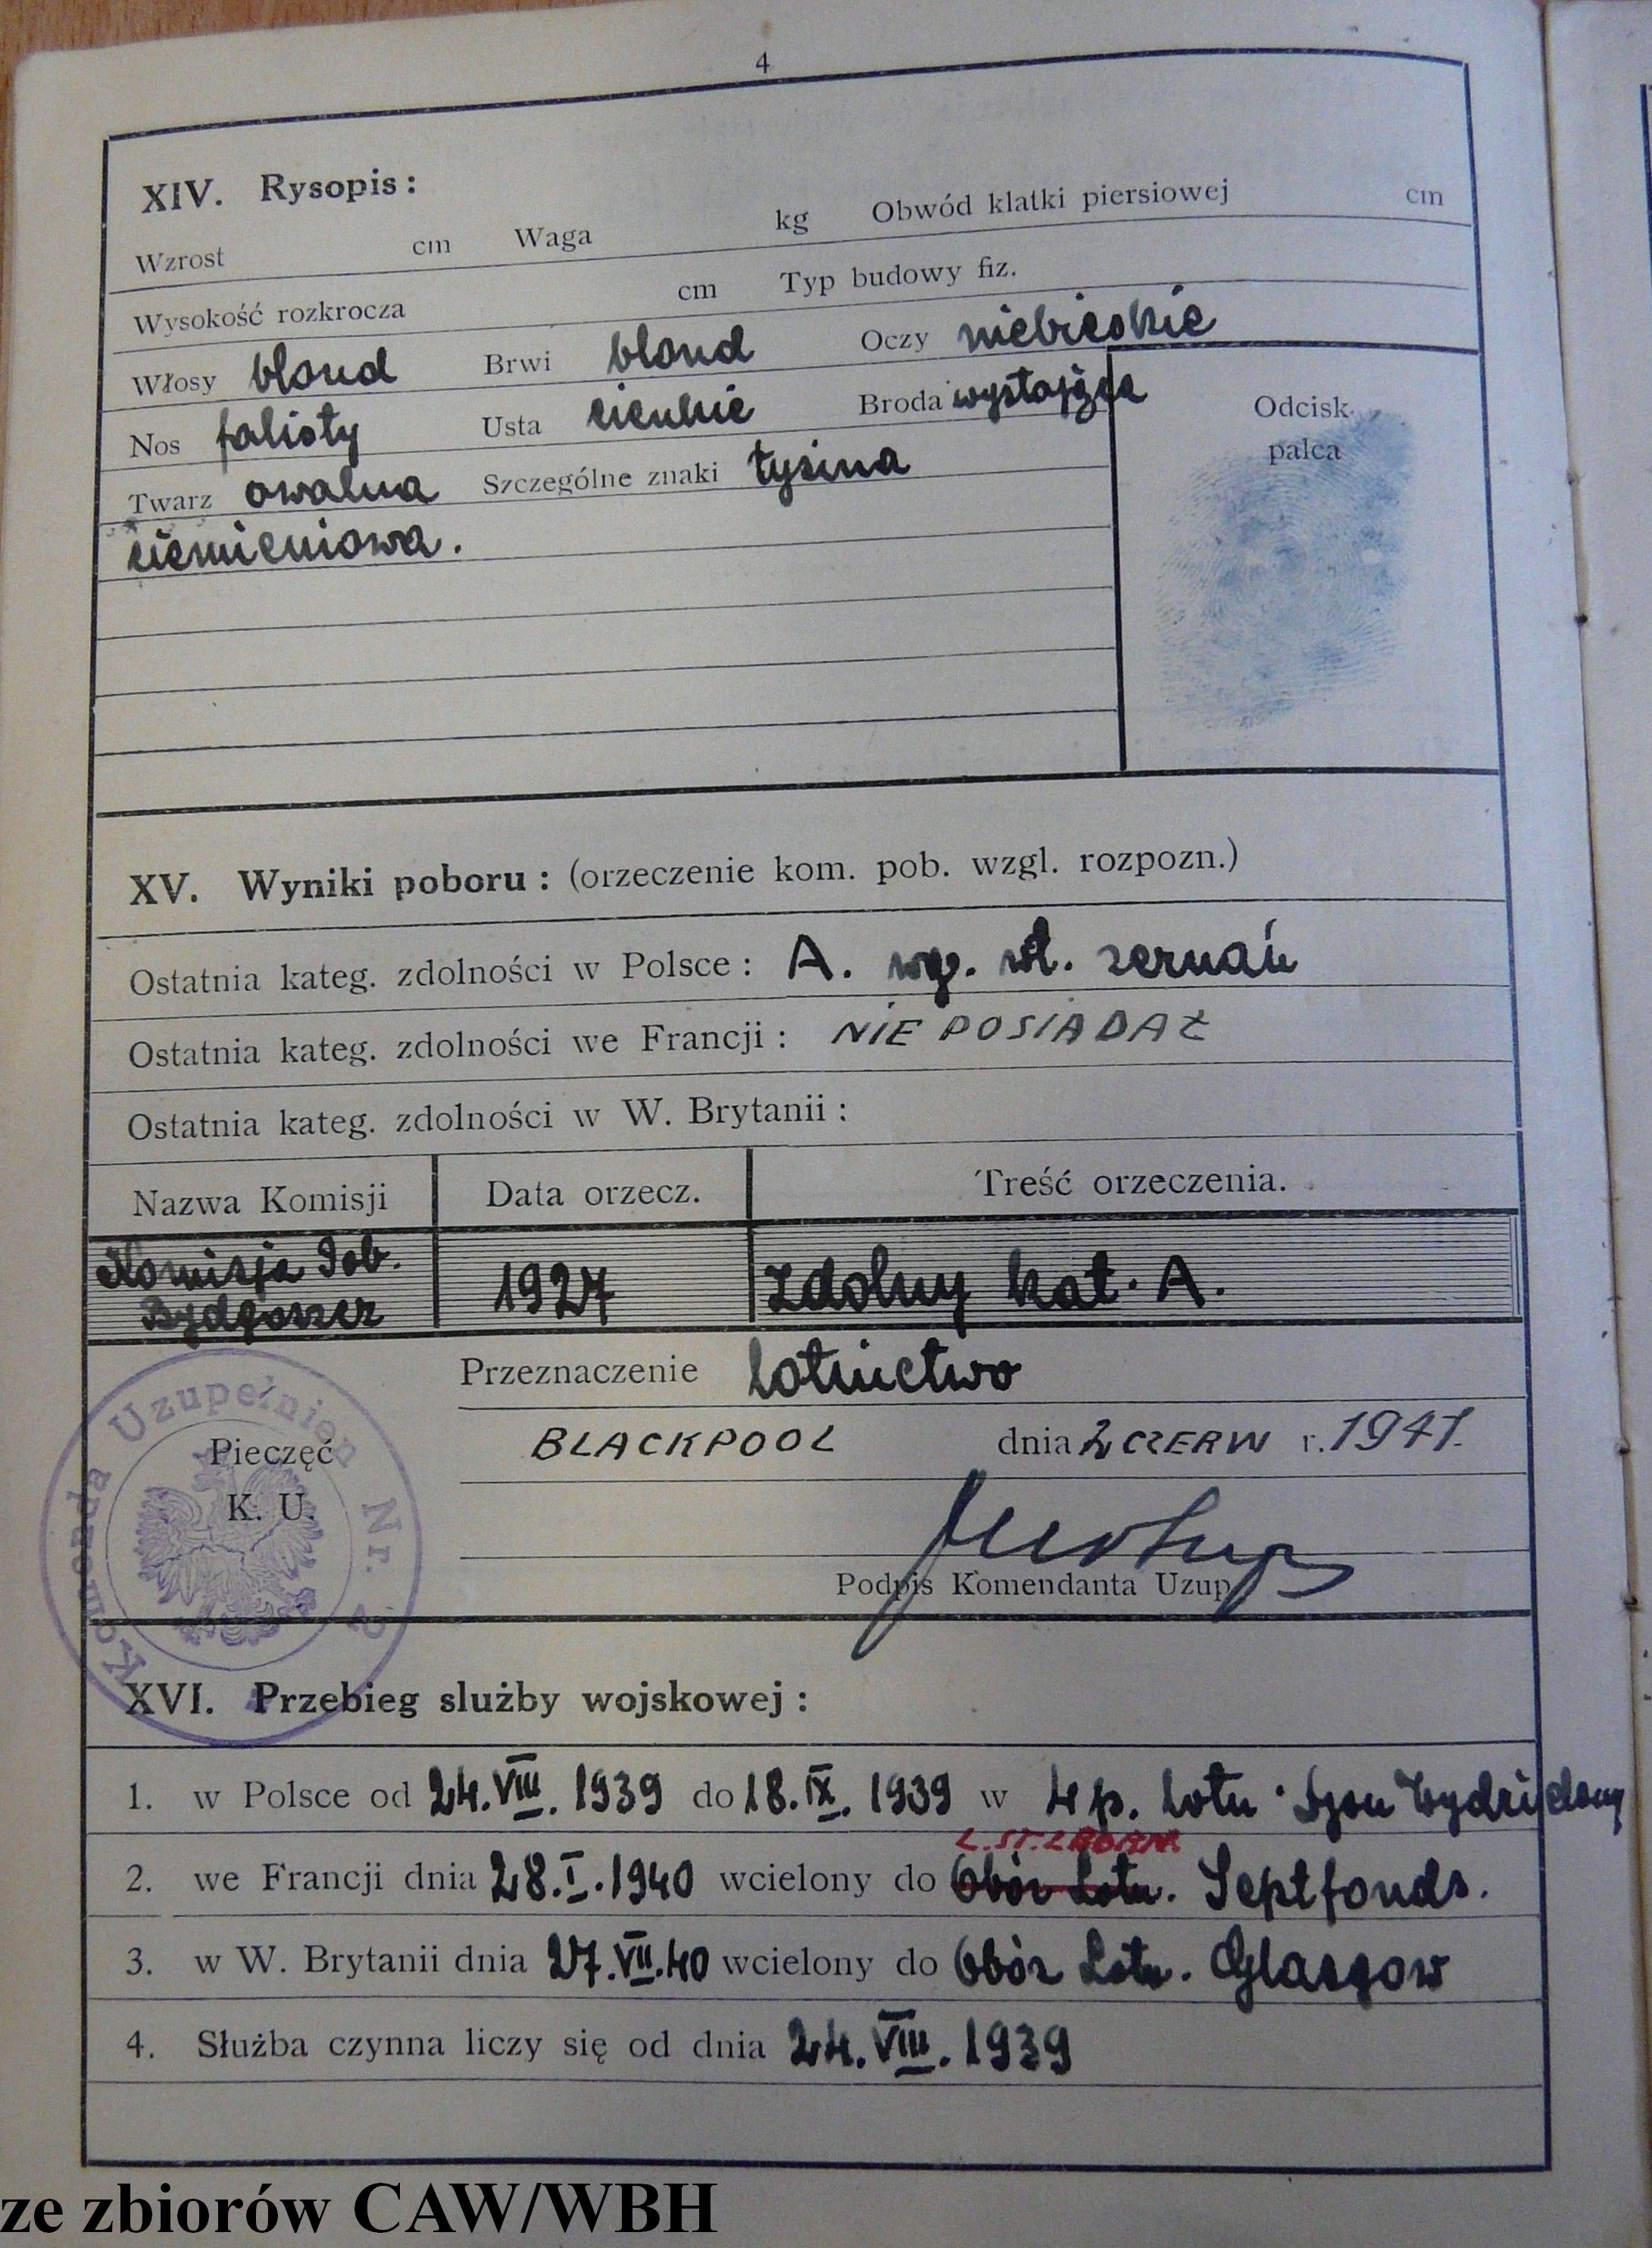 4
XIV. Rysopis:
Wzrost cm Waga kg Obwód klatki piersiowej cm
Wysokość rozkrocza cm Typ budowy fiz.
Włosy blond Brwi blond Oczy niebieskie
Nos falisty Usta cienkie Broda wystająca
Twarz owalna Szczególne znaki łysina
ciemieniowa.
Odcisk
palca
XV. Wyniki poboru: (orzeczenie kom. pob. wzgl. rozpozn.)
Ostatnia kateg. zdolności w Polsce: A. wg. wł. zeznań
Ostatnia kateg. zdolności we Francji: NIE POSIADAŁ
Ostatnia kateg. zdolności w W. Brytanii:
Nazwa Komisji Data orzecz. Treść orzeczenia.
Komisja Pob. Bydgoszcz 1927 Zdolny kat. A.
Przeznaczenie lotnictwo
Komenda Uzupełnień Nr. 2
Pieczęć
K. U.
BLACKPOOL dnia 2 CZERW r. 1941.
Podpis Komendanta Uzup
XVI. Przebieg służby wojskowej:
1. w Polsce od 24.VIII.1939 do 18.IX.1939 w 4 p. lotn. Dyon Wydzielony
L. ST.
2. we Francji dnia 28.I.1940 wcielony do Obóz Lotn. Septfonds.
3. w W. Brytanii dnia 27.VII.40 wcielony do Obóz Lotn. Glasgow
4. Służba czynna liczy się od dnia 24.VIII.1939
ze zbiorów CAW/WBH